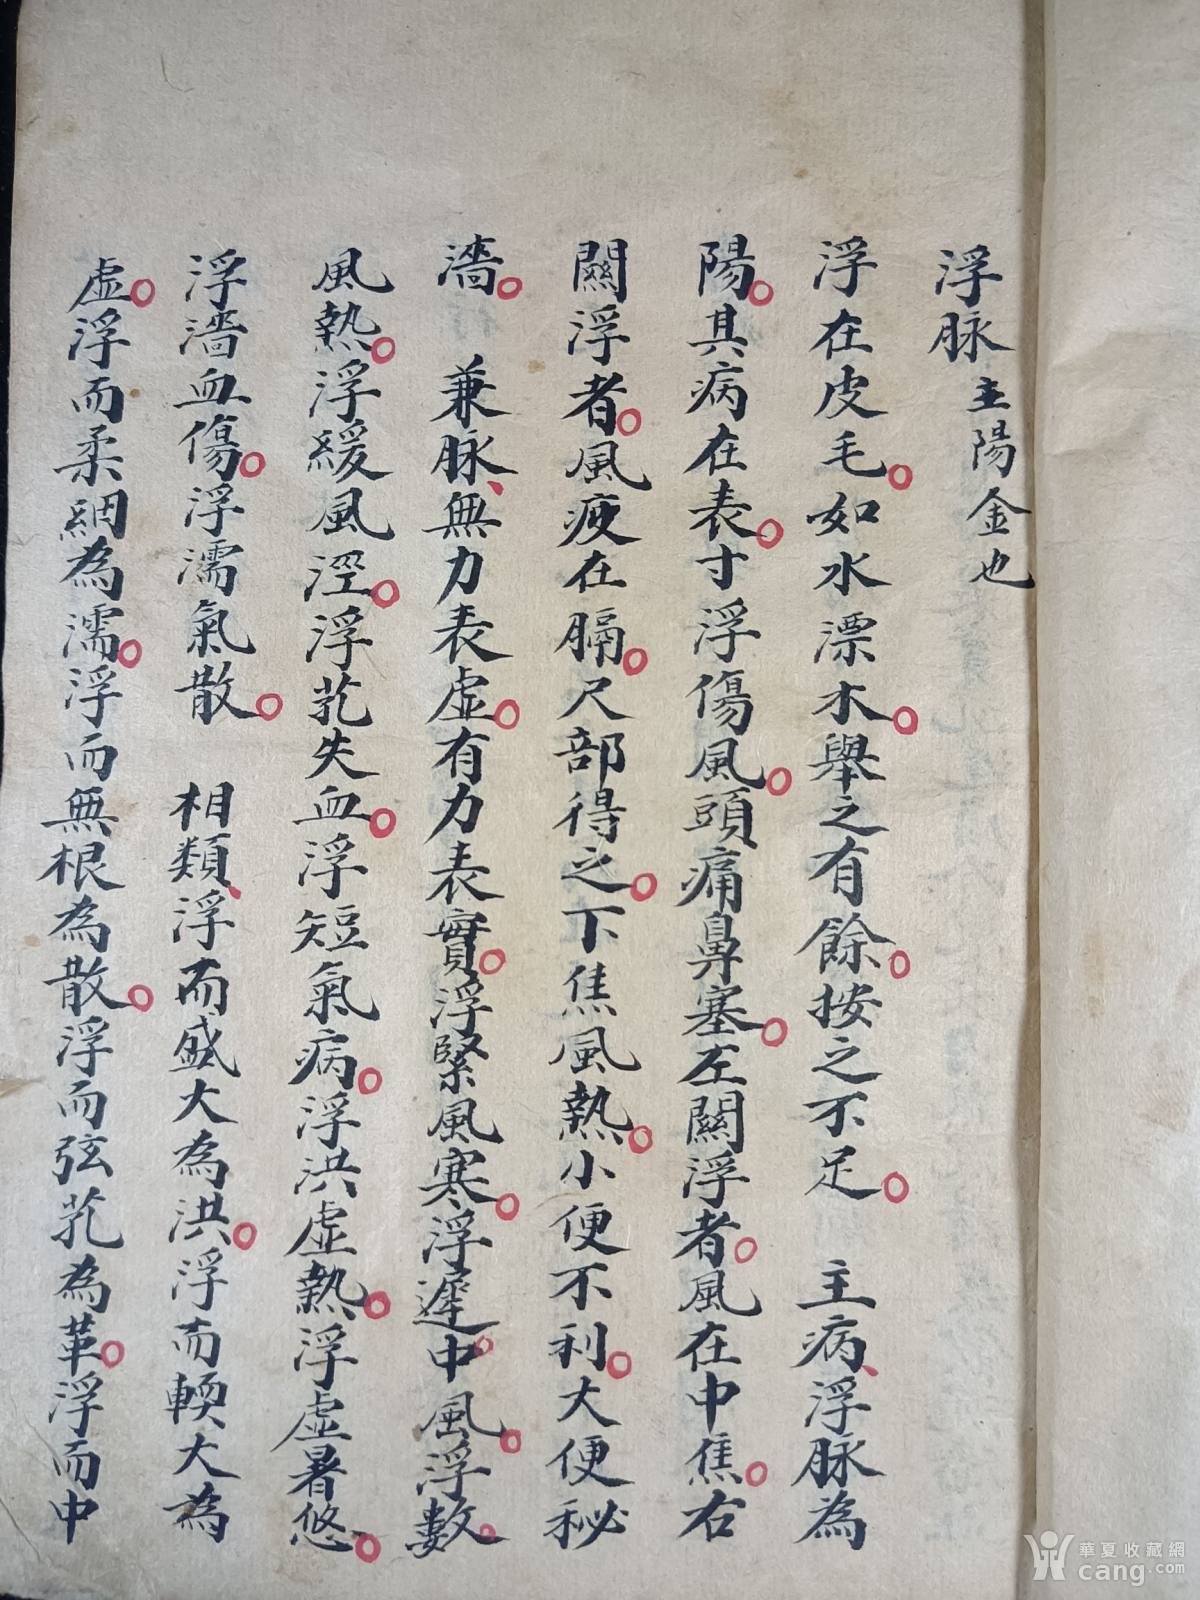 浮脉 主陽金也
浮在皮毛。如水漂木。舉之有餘。按之不足。 主病、浮脉為
陽。其病在表。寸浮傷風。頭痛鼻塞。左關浮者。風在中焦。右
關浮者。風痰在膈。尺部得之。下焦風熱。小便不利。大便秘
濇。 兼脉、無力表虛。有力表實。浮緊風寒。浮遲中風。浮數
風熱。浮緩風溼。浮芤失血。浮短氣病。浮洪虛熱。浮虛暑悠。
浮濇血傷。浮濡氣散。 相類、浮而盛大為洪。浮而輭大為
虛。浮而柔細為濡。浮而無根為散。浮而弦芤為革。浮而中
華夏收藏網
cang.com